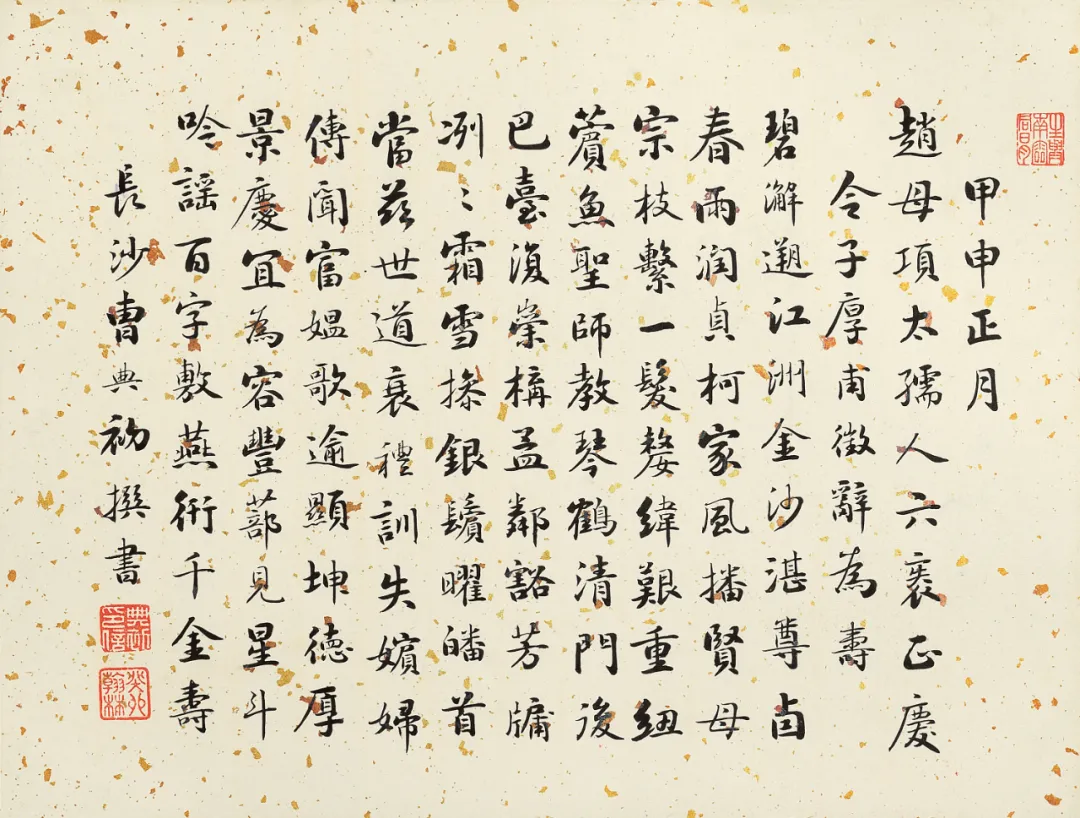 甲申正月
趙母項太孺人六袠正慶
令子厚甫徵辭為壽
碧澥遡江洲金沙湛尊卣
春雨润貞柯家風播賢母
宗枝繫一髮嫠緯艱重紐
薲魚聖師教琴鶴清門後
巴臺復崇構孟鄰豁芳牖
冽〻霜雪操銀鬢曜皤首
當茲世道衰禮訓失嬪婦
傳聞富媼歌逾顯坤德厚
景慶宜為容豐蔀見星斗
吟謡百字敷燕衎千金壽
長沙曹典初撰書
典初印信
癸卯翰林